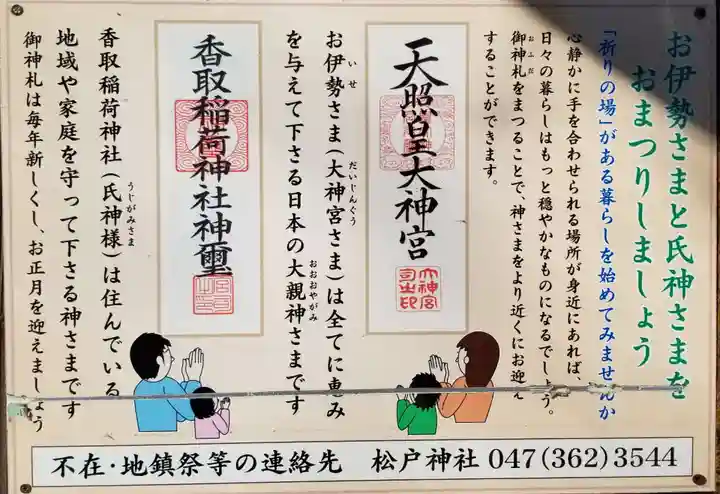 お伊勢さまと氏神さまを
おまつりしましょう
「祈りの場」がある暮らしを始めてみませんか
心静かに手を合わせられる場所が身近にあれば、
日々の暮らしはもっと穏やかなものになるでしょう。
御神札をまつることで、神さまをより近くにお迎え
おふだ
することができます。
天照皇大神宮
大神宮
司之印
お伊勢さま(大神宮さま)は全てに恵み
いせ
だいじんぐう
を与えて下さる日本の大親神さまです
おおおやがみ
香取稲荷神社神璽
香取稲荷神社(氏神様)は住んでいる
うじがみさま
地域や家庭を守って下さる神さまです
御神札は毎年新しくし、お正月を迎えましょう
不在・地鎮祭等の連絡先 松戸神社 047(362)3544